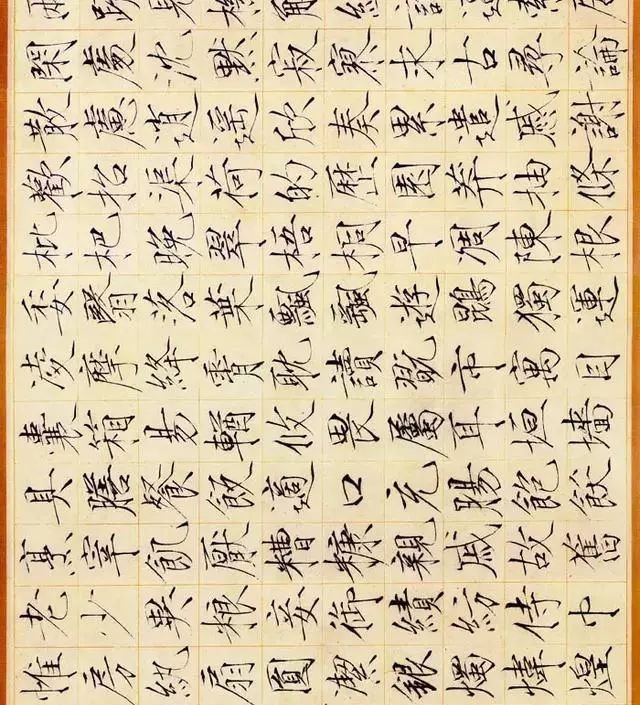 閑處沈默寂寥求古尋論
散慮逍遥欣奏累遣慼謝
歡招渠荷的歴園莽抽條
枇杷晚翠梧桐早凋陳根
委翳落葉飄颻遊鵾獨運
凌摩絳霄耽讀翫市寓目
囊箱易輶攸畏屬耳垣墻
具膳餐飯適口充腸飽飫
烹宰飢厭糟糠親戚故舊
老少異粮妾御績紡侍巾
帷房紈扇圓潔銀燭煒煌